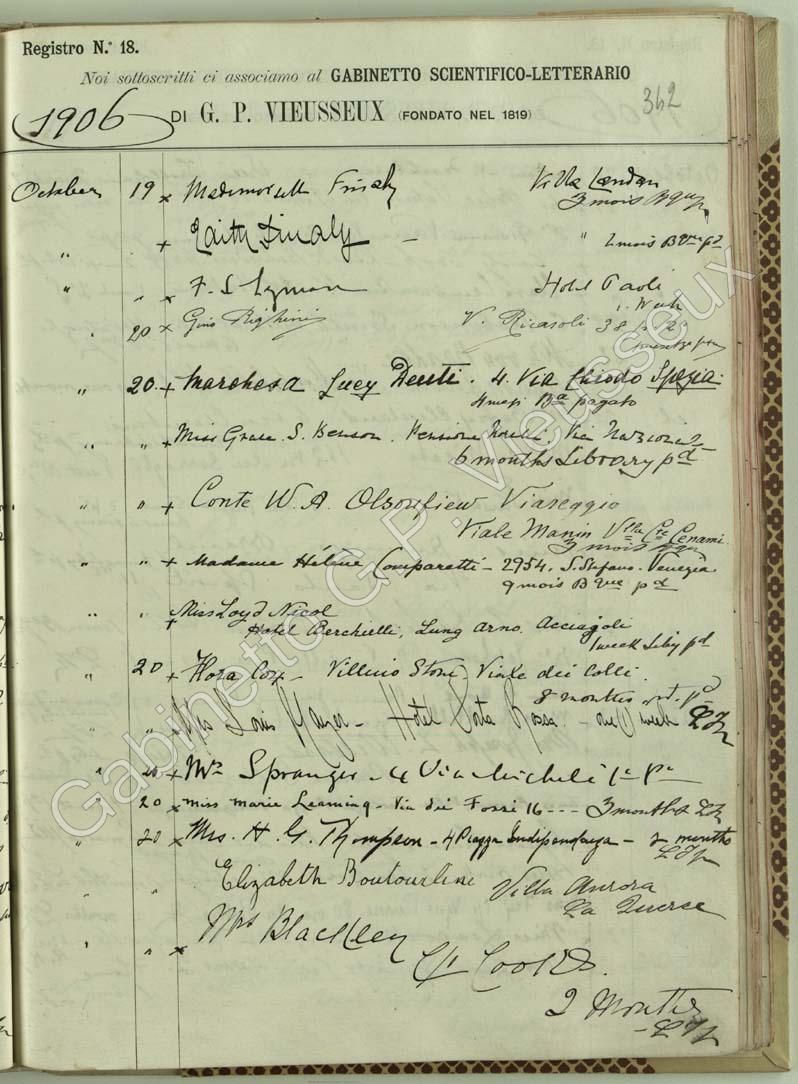 Registro N.° 18.
Noi sottoscritti ci associamo al GABINETTO SCIENTIFICO-LETTERARIO
1906 DI G. P. VIEUSSEUX (FONDATO NEL 1819) 362
October 19 x Mademoiselle Finaly Villa Landau
3 mois
" + Edith Finaly — " 2 mois pd
" " x F. S. Lyman Hotel Paoli
1 Week
" 20 x Gino Righini V. Ricasoli 38
" 20 + Marchesa Lucy 4. Via Chiodo Spezia
4 mesi Ba pagato
" " + Miss Grace S. Benson. Pensione Via
6 months Library pd
" " + Conte W. A. Olsoufiew Viareggio
Viale Manin Cenami
3 mois
" " + Madame Hélène Comparetti – 2954. S. Stefano. Venezia
9 mois Bque pd
" " + Miss Loyd Nicol
Hotel Berchielli, Lung Arno Acciajoli
1 week pd
" 20 + Flora Cox – Villino Stone, Viale dei Colli.
8 months
" " x Mrs Louis – Hotel Porta Rossa – one week
" 20 + Mrs Spranger – 4 Via Micheli
" 20 x Miss Marie Leaming – Via dei Fossi 16 --- 3 months
" 20 x Mrs. H. G. Thompson – 4 Piazza Indipendenza – 2 months
" Elizabeth Boutourline Villa Aurora
La Querce
" " x Mrs Blackley
C/o Cooks.
2 Months
Gabinetto G.P. Vieusseux